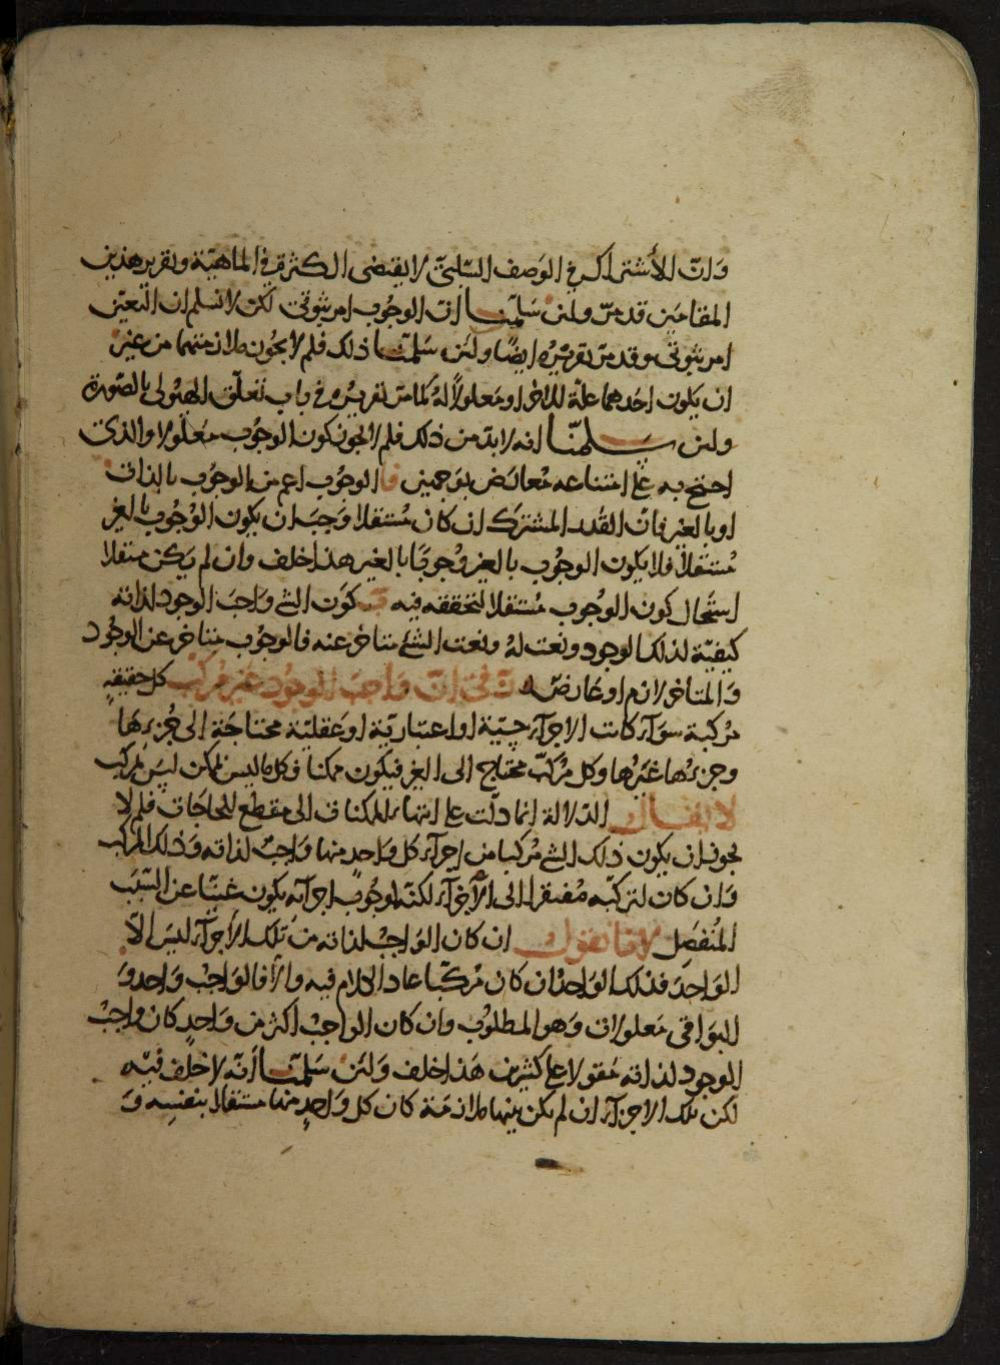 وَانّ الأشتراك في الوَصف السّلبيّ لا يقتضى الكثرة في الماهيّة وتقرير هذين
المقامَين قد مرّ ولئن سَلّمنَا انّ الوجُوب امر ثبوتى لكن لا نسلم ان التعيّن
امر ثبوتى وقد مرّ تقريرُه ايضًا ولئن سَلمنَا ذلك فلم لا يجُوز ملازمتهما من غير
ان يكون احَدهما علة للاخر او مَعلولاً لهُ كما مرّ تقريرُه في باب تعلّق الهيُولى بالصّورة
ولئن سلمنّا انه لا بدّ من ذلك فلم لا يجوز كون الوجُوب مَعلولا والذى
احتج به على امتناعه مُعارَض بوَجهين فا الوجُوب اعم من الوجوُب بالذات
او بالغير فانّ القَدر المشترَك ان كان مُستقلا وَجَبَ ان يكون الوُجُوب بالغير
مُستقلاً فلا يكون الوجُوب بالغير وُجوبًا بالغير هذا خلف وان لم يَكن مستقلا
استحَال كون الوُجوب مُستقلا لتحققه فيه كوَن الشى وَاجبَ الوجود لذاته
كيفيّة لذلك الوجود ونعت لهُ ونعت الشئ متاخر عنه فالوجُوب متاخر عن الوجُود
وَالمتاخر لازم او عَارضٌ في انّ وَاجبَ الوجُود غير مُركب كل حقيقهٍ
مرُكبة سوَآء كانت الاجزآء حِسّية او اعتباريّة او عَقليّة محتاجَة الى جُزءِهَا
وجزءُها غيَرُها وكل مُركبّ محتاج الى الغير فيكون ممكنا فكل ما ليس بممكن ليسَ بمركب
لا يقال الدّلالة انما دلّت على انتهاء الممكنات الى مقطع الحاجَات فلم لا
يجوز ان يكون ذلك الشئ مُركبا من اجزآء كل وَاحدٍ منها وَاجبٌ لذاته وَذلك المركب
وَان كان لتركبّه مُفتقرا الى الأجزآء لكنّه لوجُوبِ اجزآئه يكون غَنيّا عن السّبَب
المُنفصِل لانا نقول ان كان الوَاجبُ لذاته من تلك الأجزآء ليسَ الاّ
الوَاحدَ فذلك الوَاحدُ ان كان مُركبّا عاد الكلام فيه والاّ فالوَاجبُ وَاحدٌ وَ
البوَاقى مَعلولات وَهو المطلوُب وان كان الواجبُ اكثر من وَاحدٍ كان وَاجبُ
الوجود لذاته مَقولا على كثيرين هَذا خلف وَلئن سَلمّنَا أنّه لا خلف فيه
لكن تلك الاجزآء ان لم يكن بينها ملازمَة كان كل وَاحدٍ منها مستقلا بنفسِه وَ